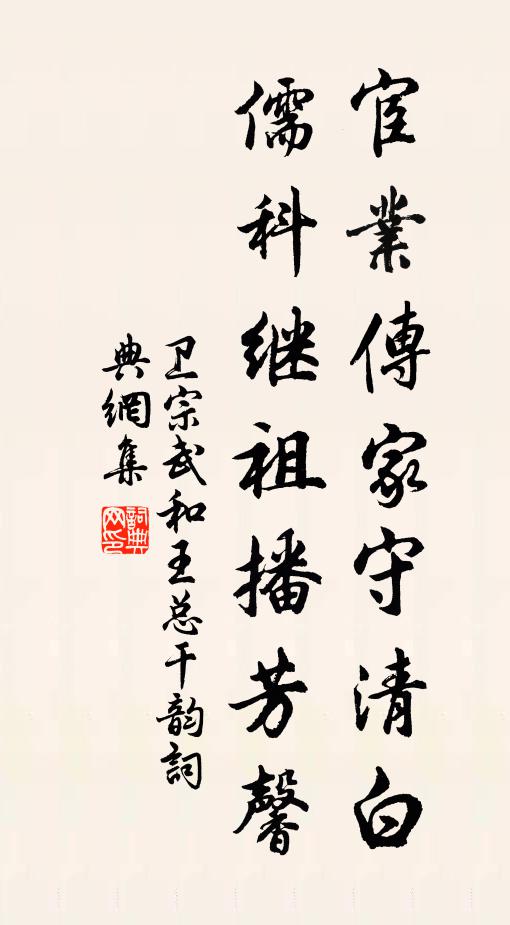 宦業傳家守清白
儒科继祖播芳馨
卫宗武和王总干韵詞
典網集
詞典
网印